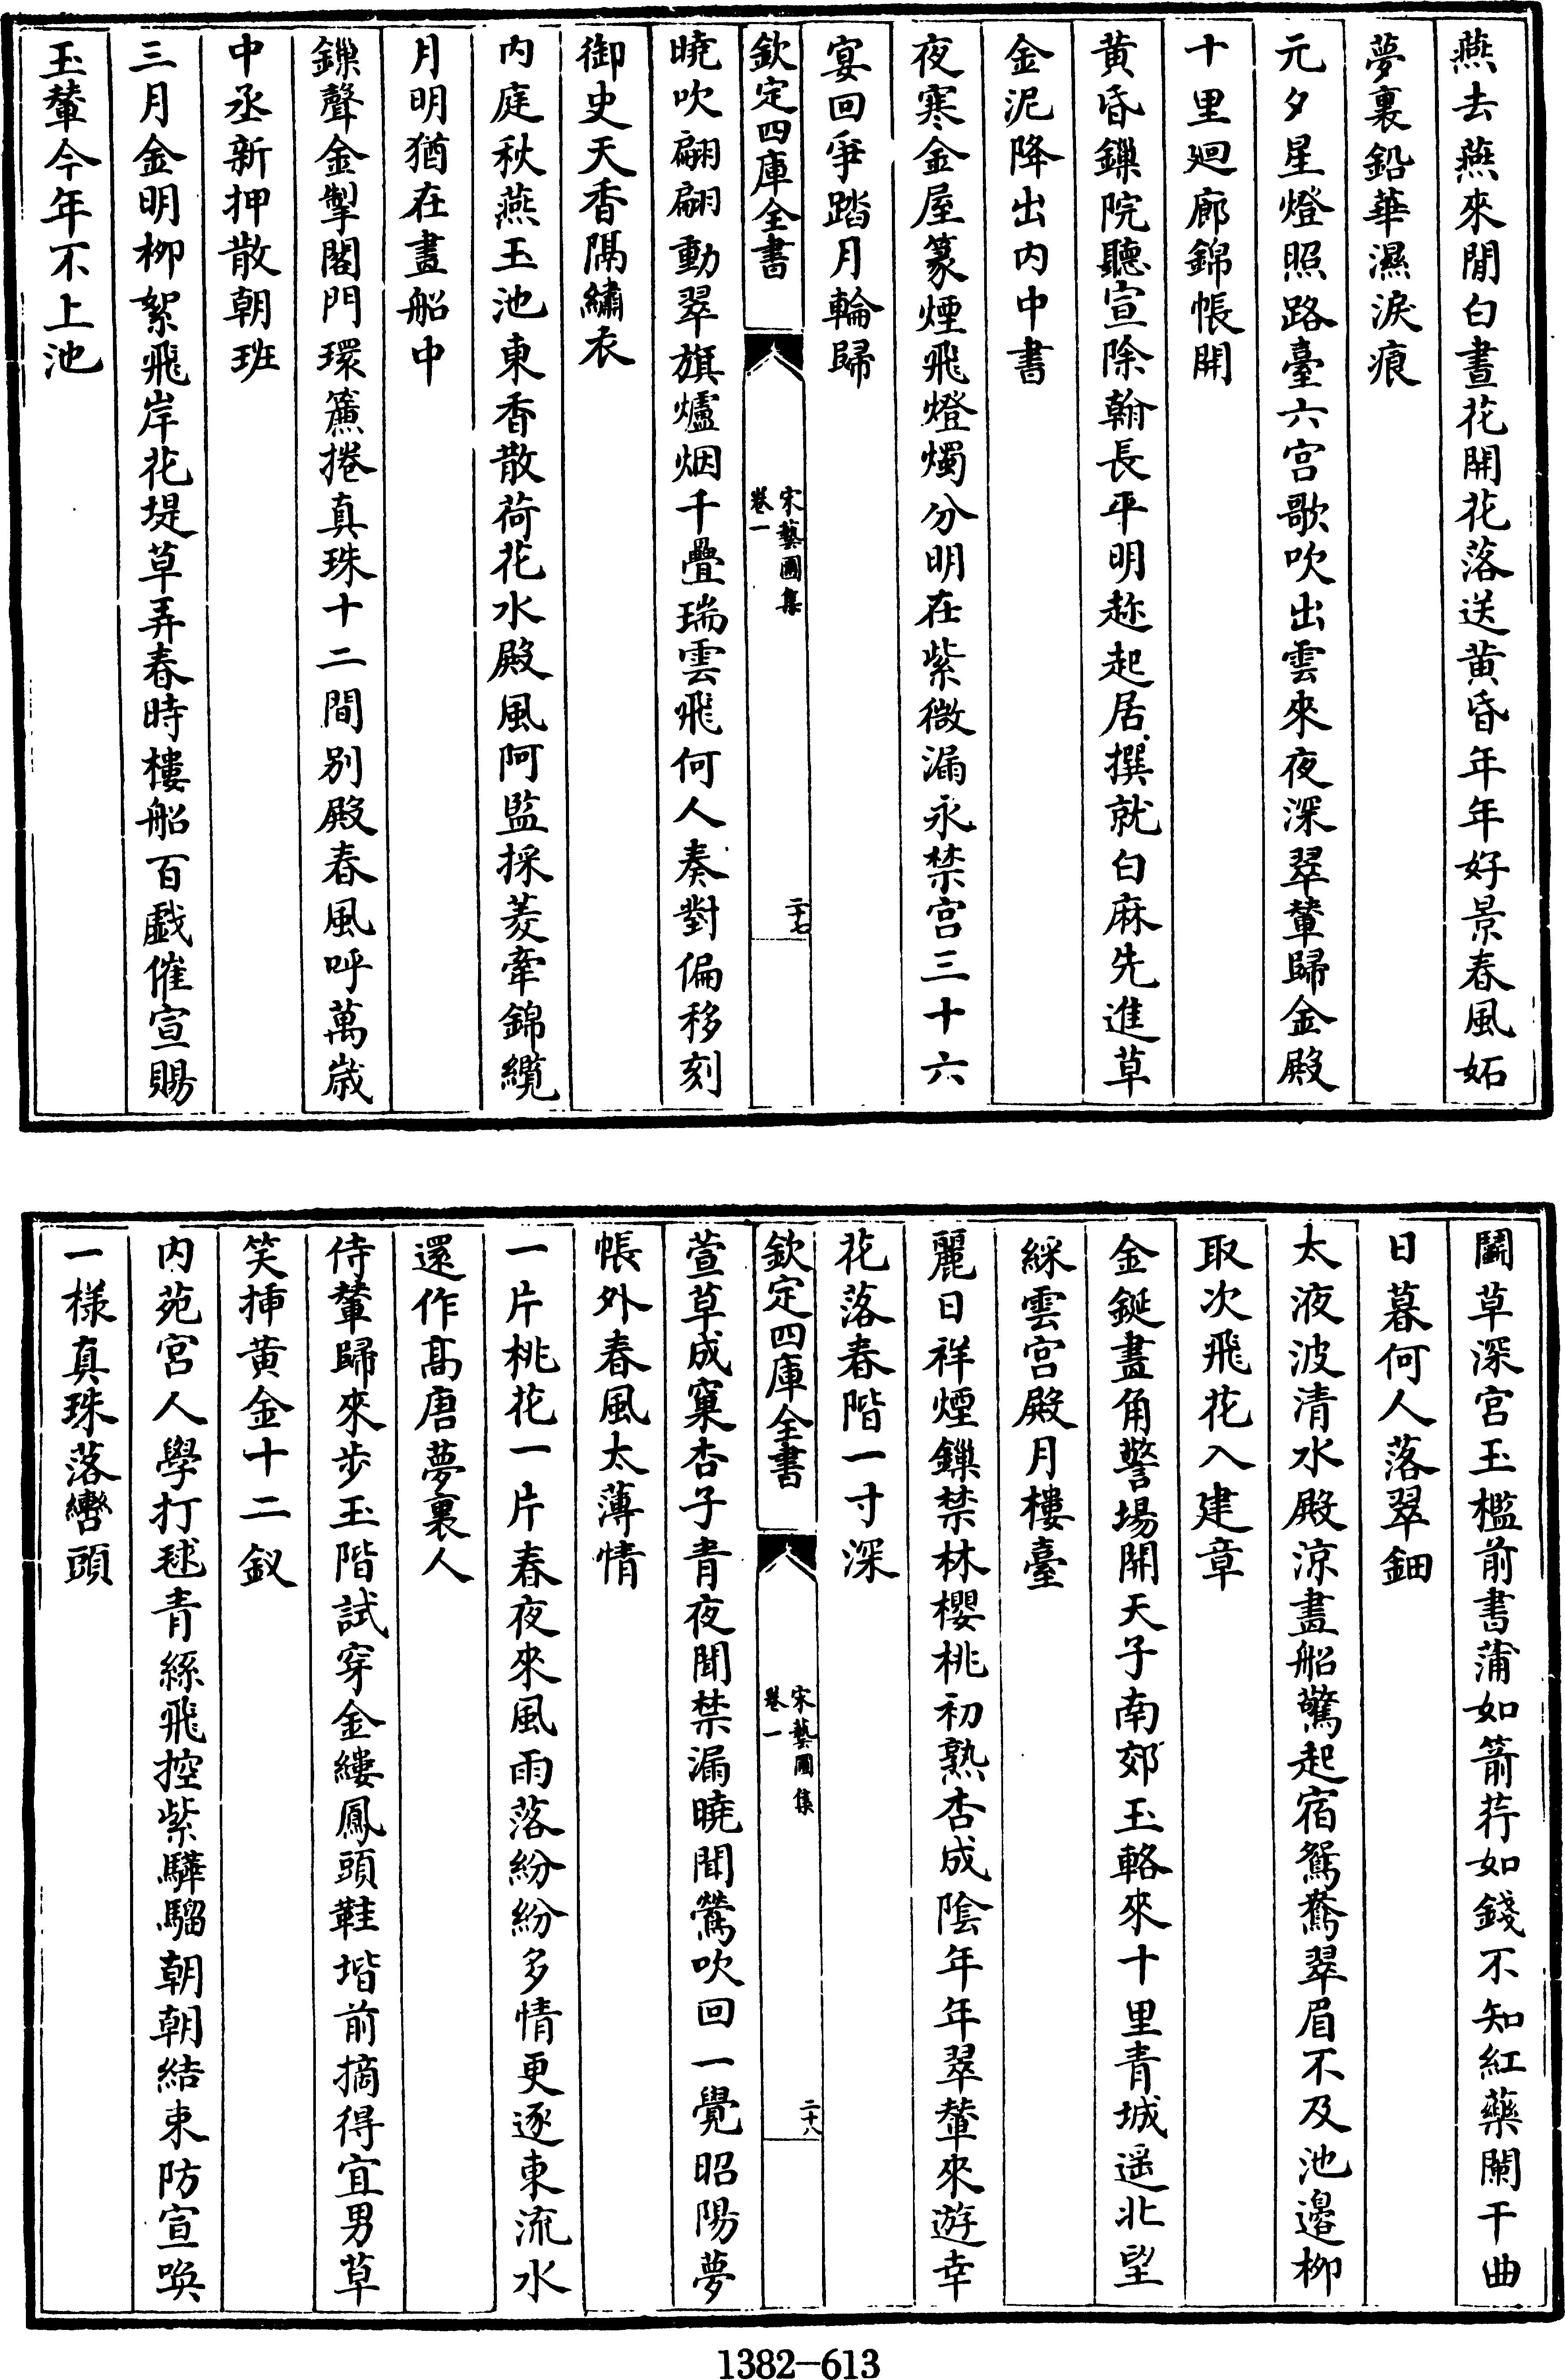 燕去燕來閒白晝花開花落送黄昏年年好景春風妬
夢裏鉛華濕淚痕
元夕星燈照路臺六宫歌吹出雲來夜深翠輦歸金殿
十里廻廊錦帳開
黄昏鏁院聽宣除翰長平明趂起居撰就白麻先進草
金泥降出内中書
夜寒金屋篆煙飛燈燭分明在紫微漏永禁宫三十六
宴回爭踏月輪歸
欽定四庫全書
宋藝圃集
卷一
二十七
曉吹翩翩動翠旗爐烟千疊瑞雲飛何人奏對偏移刻
御史天香隔繡衣
内庭秋燕玉池東香散荷花水殿風阿監採菱牽錦纜
月明猶在畫船中
鏁聲金掣閤門環簾捲真珠十二間别殿春風呼萬歲
中丞新押散朝班
三月金明柳絮飛岸花堤草弄春時樓船百戯催宣賜
玉輦今年不上池
鬭草深宫玉檻前書蒲如箭荇如錢不知紅藥闌干曲
日暮何人落翠鈿
太液波清水殿涼畫船驚起宿鴛鴦翠眉不及池邉柳
取次飛花入建章
金鋋畫角警場開天子南郊玉輅來十里青城遥北望
綵雲宫殿月樓臺
麗日祥煙鏁禁林櫻桃初熟杏成陰年年翠輦來遊幸
花落春階一寸深
欽定四庫全書
宋藝圃集
卷一
二十八
萱草成窠杏子青夜聞禁漏曉聞鶯吹回一覺昭陽夢
帳外春風太薄情
一片桃花一片春夜來風雨落紛紛多情更逐東流水
還作髙唐夢裏人
侍輦歸來步玉階試穿金縷鳳頭鞋堦前摘得宜男草
笑揷黄金十二釵
内苑宫人學打毬青絲飛控紫驊騮朝朝結束防宣喚
一様真珠落轡頭
1382-613